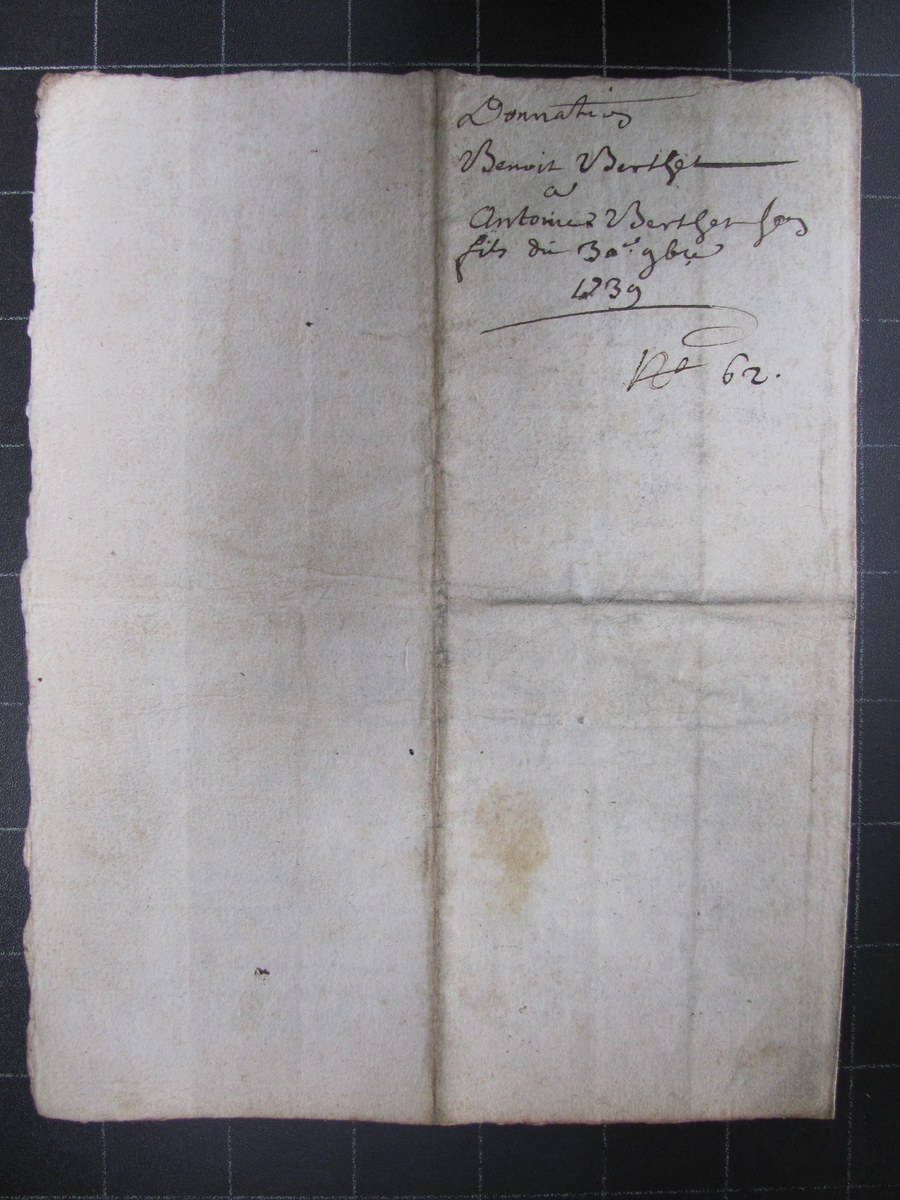 Donnation
Benoit Berthet
a
Antoine Berthet son
fils du 30e. 9bre
1739
No 62.